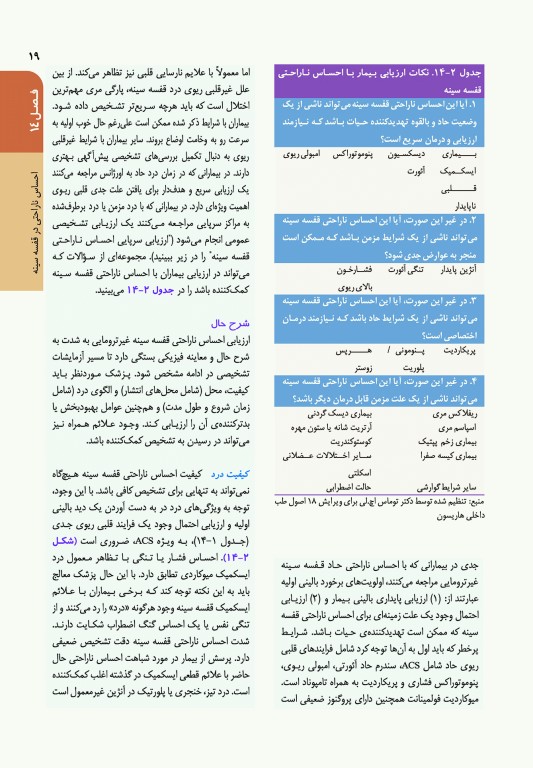 ۱۹
فصل ۱۴
احساس ناراحتی در قفسه سینه
جدول ۲-۱۴. نکات ارزیابی بیمار با احساس ناراحتی
قفسه سینه
۱. آیا این احساس ناراحتی قفسه سینه می‌تواند ناشی از یک
وضعیت حاد و بالقوه تهدیدکننده حیات باشد که نیازمند
ارزیابی و درمان سریع است؟
بیماری دیسکسیون پنوموتوراکس آمبولی ریوی
ایسکمیک آئورت
قلبی
ناپایدار
۲. در غیر این صورت، آیا این احساس ناراحتی قفسه سینه
می‌تواند ناشی از یک شرایط مزمن باشد که ممکن است
منجر به عوارض جدی شود؟
آنژین پایدار تنگی آئورت فشارخون
بالای ریوی
۳. در غیر این صورت، آیا این احساس ناراحتی قفسه سینه
می‌تواند ناشی از یک شرایط حاد باشد که نیازمند درمان
اختصاصی است؟
پریکاردیت پنومونی / هرپس
پلوریت زوستر
۴. در غیر این صورت، آیا این احساس ناراحتی قفسه سینه
می‌تواند ناشی از یک علت مزمن قابل درمان دیگر باشد؟
ریفلاکس مری بیماری دیسک گردنی
اسپاسم مری آرتریت شانه یا ستون مهره
بیماری زخم پپتیک کوستوکندریت
بیماری کیسه صفرا سایر اختلالات عضلانی
اسکلتی
سایر شرایط گوارشی حالت اضطرابی
منبع: تنظیم شده توسط دکتر توماس اچ.لی برای ویرایش ۱۸ اصول طب
داخلی هاریسون
جدی در بیمارانی که با احساس ناراحتی حاد قفسه سینه
غیرترومایی مراجعه می‌کنند، اولویت‌های برخورد بالینی اولیه
عبارتند از: (۱) ارزیابی پایداری بالینی بیمار و (۲) ارزیابی
احتمال وجود یک علت زمینه‌ای برای احساس ناراحتی قفسه
سینه که ممکن است تهدیدکننده‌ی حیات باشد. شرایط
پرخطر که باید اول به آن‌ها توجه کرد شامل فرایندهای قلبی
ریوی حاد شامل ACS، سندرم حاد آئورتی، آمبولی ریوی،
پنوموتوراکس فشاری و پریکاردیت به همراه تامپوناد است.
میوکاردیت فولمینانت همچنین دارای پروگنوز ضعیفی است
اما معمولاً با علایم نارسایی قلبی نیز تظاهر می‌کند. از بین
علل غیرقلبی ریوی درد قفسه سینه، پارگی مری مهم‌ترین
اختلال است که باید هرچه سریع‌تر تشخیص داده شود.
بیماران با شرایط ذکر شده ممکن است علی‌رغم حال خوب اولیه به
سرعت رو به وخامت اوضاع بروند. سایر بیماران با شرایط غیرقلبی
ریوی به دنبال تکمیل بررسی‌های تشخیصی پیش‌آگهی بهتری
دارند. در بیمارانی که در زمان درد حاد به اورژانس مراجعه می‌کنند
یک ارزیابی سریع و هدف‌دار برای یافتن علت جدی قلبی ریوی
اهمیت ویژه‌ای دارد. در بیمارانی که با درد مزمن یا درد برطرف‌شده
به مراکز سرپایی مراجعه می‌کنند یک ارزیابی تشخیصی
عمومی انجام می‌شود ("ارزیابی سرپایی احساس ناراحتی
قفسه سینه" را در زیر ببینید). مجموعه‌ای از سؤالات که
می‌تواند در ارزیابی بیماران با احساس ناراحتی قفسه سینه
کمک‌کننده باشد را در جدول ۲-۱۴ می‌بینید.
شرح حال
ارزیابی احساس ناراحتی قفسه سینه غیرترومایی به شدت به
شرح حال و معاینه فیزیکی بستگی دارد تا مسیر آزمایشات
تشخیصی در ادامه مشخص شود. پزشک موردنظر باید
کیفیت، محل (شامل محل‌های انتشار) و الگوی درد (شامل
زمان شروع و طول مدت) و هم‌چنین عوامل بهبودبخش یا
بدترکننده‌ی آن را ارزیابی کند. وجود علائم همراه نیز
می‌تواند در رسیدن به تشخیص کمک‌کننده باشد.
کیفیت درد کیفیت احساس ناراحتی قفسه سینه هیچ‌گاه
نمی‌تواند به تنهایی برای تشخیص کافی باشد. با این وجود،
توجه به ویژگی‌های درد در به دست آوردن یک دید بالینی
اولیه و ارزیابی احتمال وجود یک فرایند قلبی ریوی جدی
(جدول ۱-۱۴)، به ویژه ACS، ضروری است (شکل
۲-۱۴). احساس فشار یا تنگی با تظاهر معمول درد
ایسکمیک میوکاردی تطابق دارد. با این حال پزشک معالج
باید به این نکته توجه کند که برخی بیماران با علائم
ایسکمیک قفسه سینه وجود هرگونه «درد» را رد می‌کنند و از
تنگی نفس یا یک احساس گنگ اضطراب شکایت دارند.
شدت احساس ناراحتی قفسه سینه دقت تشخیص ضعیفی
دارد. پرسش از بیمار در مورد شباهت احساس ناراحتی حال
حاضر با علائم قطعی ایسکمیک در گذشته اغلب کمک‌کننده
است. درد تیز، خنجری یا پلورتیک در آنژین غیرمعمول است